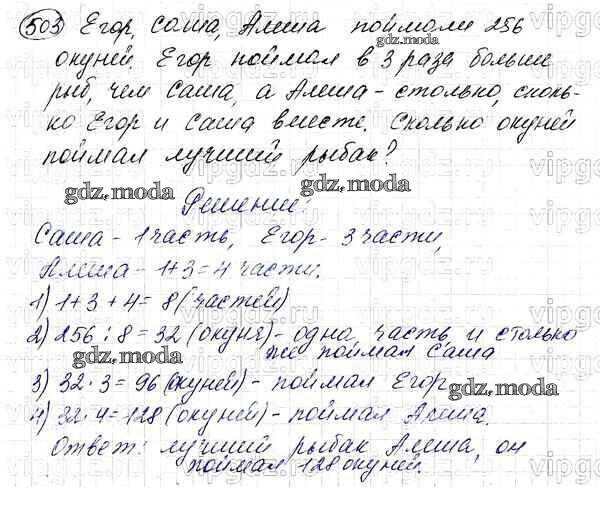 503 Егор, Саша, Алеша поймали 256
gdz.moda
окуней. Егор поймал в 3 раза больше
рыб, чем Саша, а Алеша - столько, сколь-
ко Егор и Саша вместе. Сколько окуней
поймал лучший рыбак?
gdz.moda gdz.moda
Решение:
Саша - 1 часть, Егор - 3 части,
Алеша - 1+3=4 части.
1) 1+3+4= 8 (частей)
2) 256 : 8 = 32 (окуня) - одна часть и столько
же поймал Саша
gdz.moda
3) 32·3=96 (окуней) - поймал Егор
gdz.moda
4) 32·4=128 (окуней) - поймал Алеша.
Ответ: лучший рыбак Алеша, он
поймал 128 окуней.